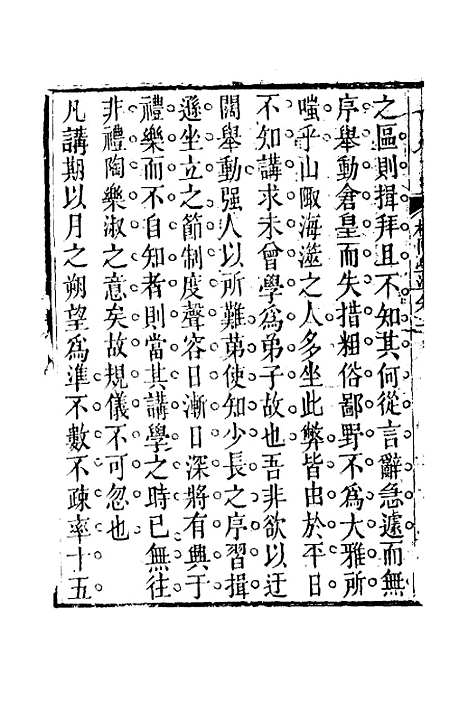 之區則揖拜且不知其何從言辭急遽而無
序舉動倉皇而失措粗俗鄙野不爲大雅所
嗤乎山陬海澨之人多坐此弊皆由於平日
不知講求未曾學爲弟子故也吾非欲以迂
闊舉動强人以所難苐使知少長之序習揖
遜坐立之節制度聲容日漸日深將有興于
禮樂而不自知者則當其講學之時已無往
非禮陶樂淑之意矣故規儀不可忽也
凡講期以月之朔望爲準不數不疎率十五